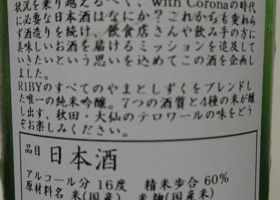 状況を乗り越えるべく、with Coronaの時代
に必要な日本酒はなにか？これからも変わら
ず酒造りを続け、飲食店さんや飲み手の方に
美味しいお酒を届けるミッションを追及して
いきたいという思いを込めてこの酒を企画し
ました。
R1BYのすべてのやまとしずくをブレンドし
た唯一の純米吟醸。7つの酒質と4種の米が醸
し出す、秋田・大仙のテロワールの味をどう
ぞお楽しみください。
品目 日本酒
アルコール分 16度 精米歩合 60%
原材料名 米(国産) 米麹(国産米)